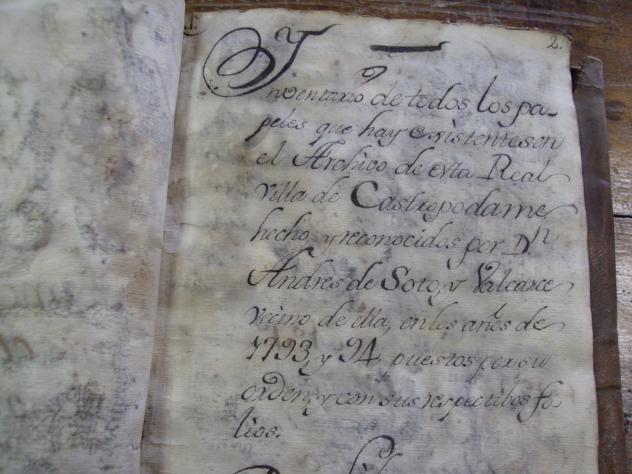 2.
Ynventario de todos los pa-
peles que hay existentes en
el Archivo de esta Real
villa de Castropodame
hecho, y reconocidos por Dn
Andres de Soto, y Valcarce
vecino de ella, en los años de
1793, y 94, puestos por su
orden, y con sus respectibos fo-
lios.